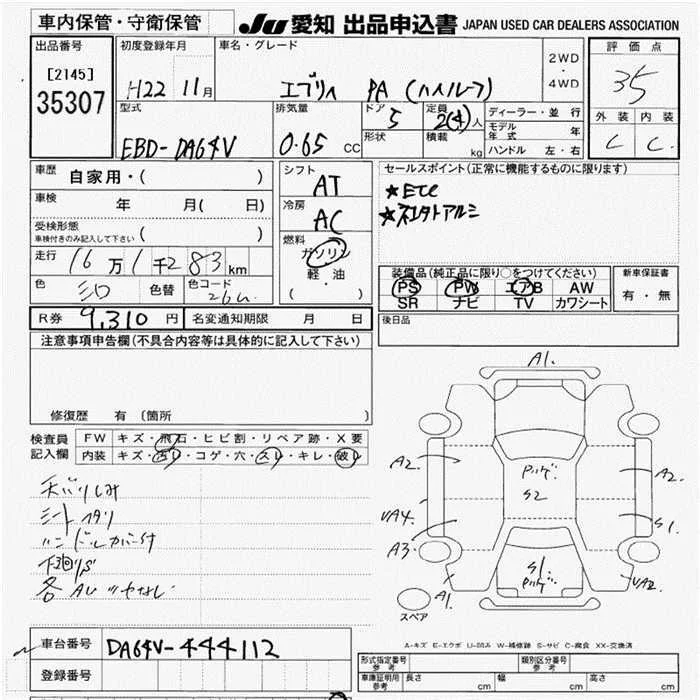 車内保管・守衛保管
JU 愛知 出品申込書 JAPAN USED CAR DEALERS ASSOCIATION
出品番号
[2145]
35307
初度登録年月
H22 11月
車名・グレード
エブリイ PA (ハイルーフ)
2WD
・
4WD
評価点
35
外装 内装
C C
型式
EBD-DA64V
排気量
0.65 CC
ドア
5
形状
定員
2(4)人
積載
kg
ディーラー・並行
モデル年式 年
ハンドル 左・右
車歴
自家用・( )
車検
年 月( 日)
受検形態
車検付きのみ記入して下さい ( )
走行
16万1千283km
色
シロ
色替
色コード
26U
シフト
AT
冷房
AC
燃料
ガソリン
軽・油
( )
セールスポイント(正常に機能するものに限ります)
★ETC
装備品(純正品に限り○をつけてください)
PS PW エアB AW
SR ナビ TV カワシート
新車保証書
有・無
R券 9,310円
名変通知期限 月 日
後日品
注意事項申告欄(不具合内容等は具体的に記入して下さい)
修復歴 有 (箇所 )
検査員記入欄
FW キズ・飛石・ヒビ割・リペア跡・X要
内装 キズ・汚リ・コゲ・穴・スレ・キレ・破レ
天バリしみ
シートヘタリ
ハンドルカバー付
下廻りS
A1.
A2.
A2.
VA4.
S1.
A3.
VA2.
A1.
S2
S1
スペア
A-キズ E-エクボ U-凹み W-補修跡 S-サビ C-腐食 XX-交換済
車台番号
DA64V-444112
登録番号
形式指定番号
参考
類別区分番号
参考
車庫証明用
参考
長さ cm
幅 cm
高さ cm